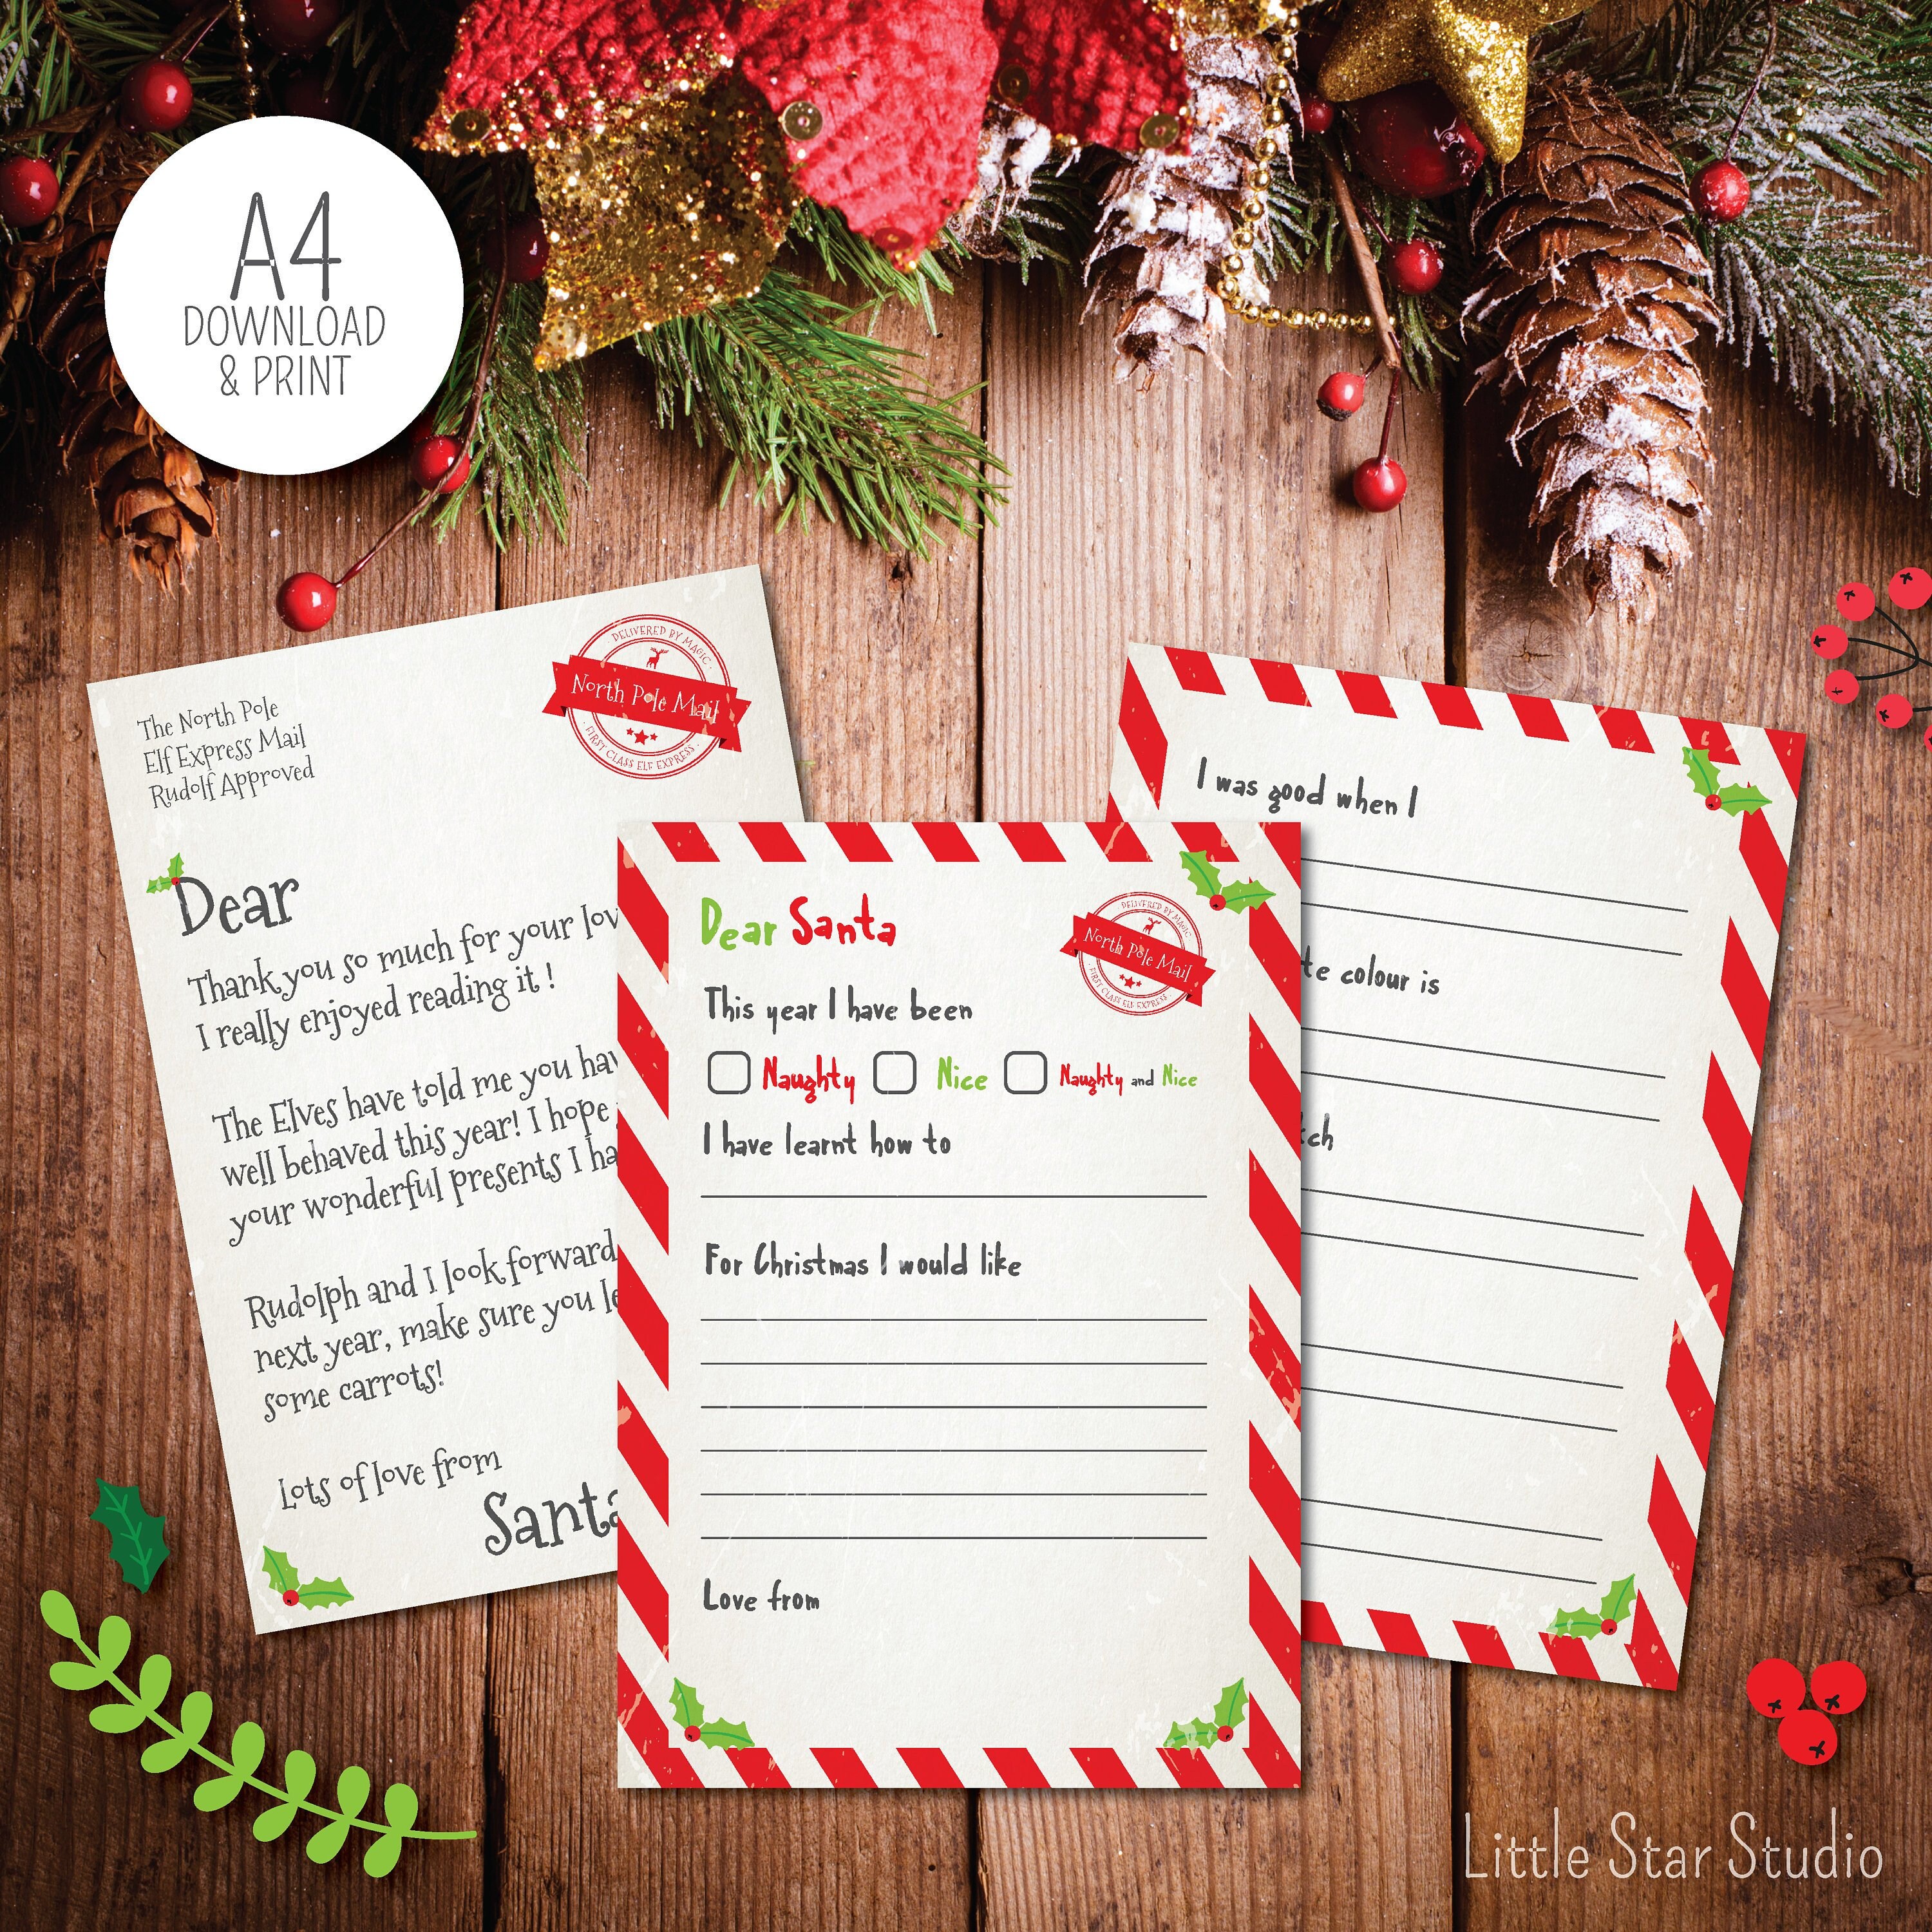 A4
DOWNLOAD
& PRINT
The North Pole
Elf Express Mail
Rudolf Approved
DELIVERED BY MAGIC
North Pole Mail
FIRST CLASS ELF EXPRESS
Dear
Thank you so much for your
I really enjoyed reading it !
The Elves have told me you
well behaved this year! I hope
your wonderful presents I
Rudolph and I look forward
next year, make sure you
some carrots!
Lots of love from
Santa
Dear Santa
DELIVERED BY MAGIC
North Pole Mail
FIRST CLASS ELF EXPRESS
This year I have been
Naughty Nice Naughty and Nice
I have learnt how to
For Christmas I would like
Love from
I was good when I
colour is
Little Star Studio